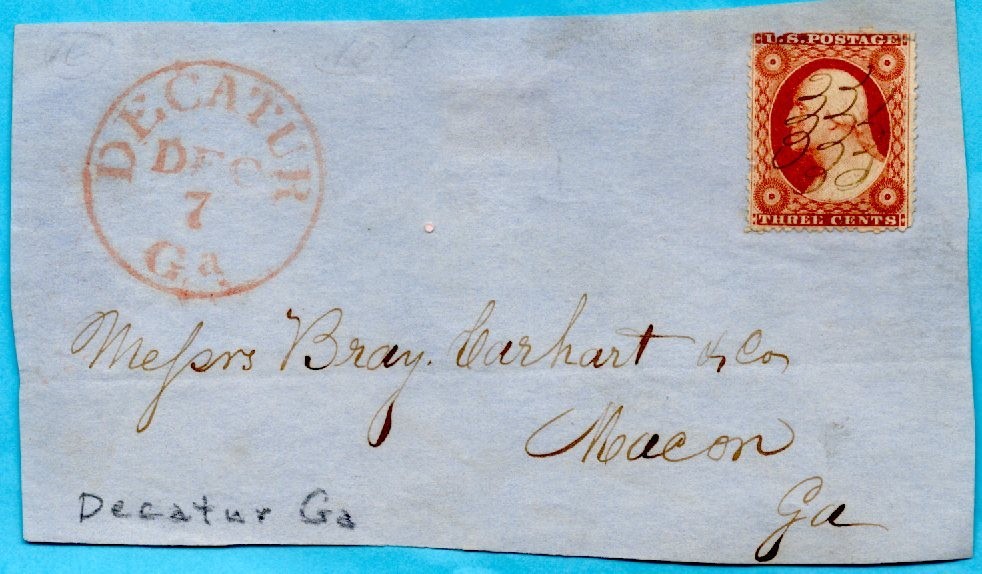 DECATUR
DEC
7
Ga
U.S. POSTAGE
THREE CENTS
Messrs Bray. Carhart & Co
Macon
Ga
Decatur Ga